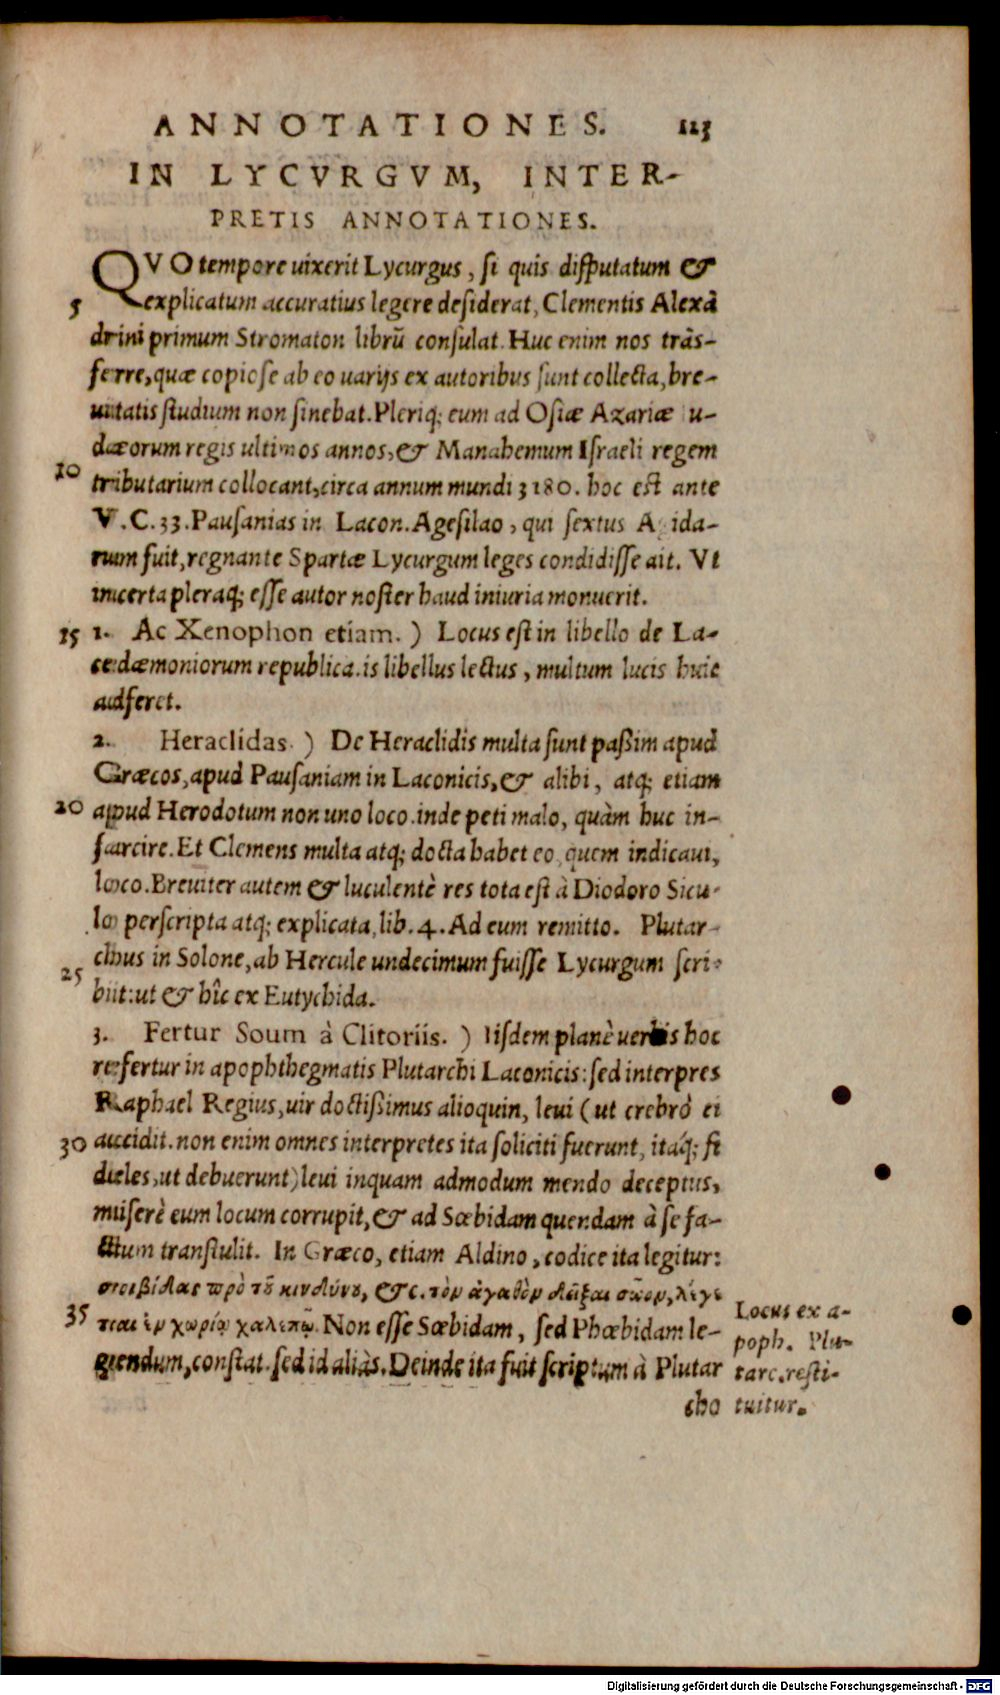 ANNOTATIONES. 113
IN LYCVRGVM, INTER-
PRETIS ANNOTATIONES.
QVO tempore uixerit Lycurgus, si quis disputatum &
5 explicatum accuratius legere desiderat, Clementis Alexã
drini primum Stromaton librũ consulat. Huc enim nos trãs-
ferre, quæ copiose ab eo uarijs ex autoribus sunt collecta, bre-
uitatis studium non sinebat. Pleriq; eum ad Osiæ Azariæ Iu-
dæorum regis ultimos annos, & Manahemum Israeli regem
10 tributarium collocant, circa annum mundi 3180. hoc est ante
V.C.33. Pausanias in Lacon. Agesilao, qui sextus Agida-
rum fuit, regnante Spartæ Lycurgum leges condidisse ait. Vt
incerta pleraq; esse autor noster haud iniuria monuerit.
15 1. Ac Xenophon etiam. ) Locus est in libello de La-
cedæmoniorum republica. is libellus lectus, multum lucis huic
adferet.
2. Heraclidas. ) De Heraclidis multa sunt paßim apud
Græcos, apud Pausaniam in Laconicis, & alibi, atq; etiam
20 apud Herodotum non uno loco. inde peti malo, quàm huc in-
farcire. Et Clemens multa atq; docta habet eo, quem indicaui,
loco. Breuiter autem & luculentè res tota est à Diodoro Sicu-
lo perscripta atq; explicata, lib. 4. Ad eum remitto. Plutar-
chus in Solone, ab Hercule undecimum fuisse Lycurgum scri-
25 bit: ut & hîc ex Eutychida.
3. Fertur Soum à Clitoriis. ) Iisdem planè uerbis hoc
refertur in apophthegmatis Plutarchi Laconicis: sed interpres
Raphael Regius, uir doctißimus alioquin, leui (ut crebrò ei
30 accidit. non enim omnes interpretes ita soliciti fuerunt, itáq; fi
deles, ut debuerunt) leui inquam admodum mendo deceptus,
miserè eum locum corrupit, & ad Sœbidam quendam à se fa-
ctum transtulit. In Græco, etiam Aldino, codice ita legitur:
σοιβίδας πρὸ τοῦ κινδύνου, &c. τὸν ἀγαθὸν δεῖξαι σῶον, λέγε
35 ται ἐν χωρίῳ χαλεπῷ. Non esse Sœbidam, sed Phœbidam le-
gendum, constat. sed id aliàs. Deinde ita fuit scriptum à Plutar
cho
Locus ex a-
poph. Plu-
tarc. resti-
tuitur.
Digitalisierung gefördert durch die Deutsche Forschungsgemeinschaft - DFG